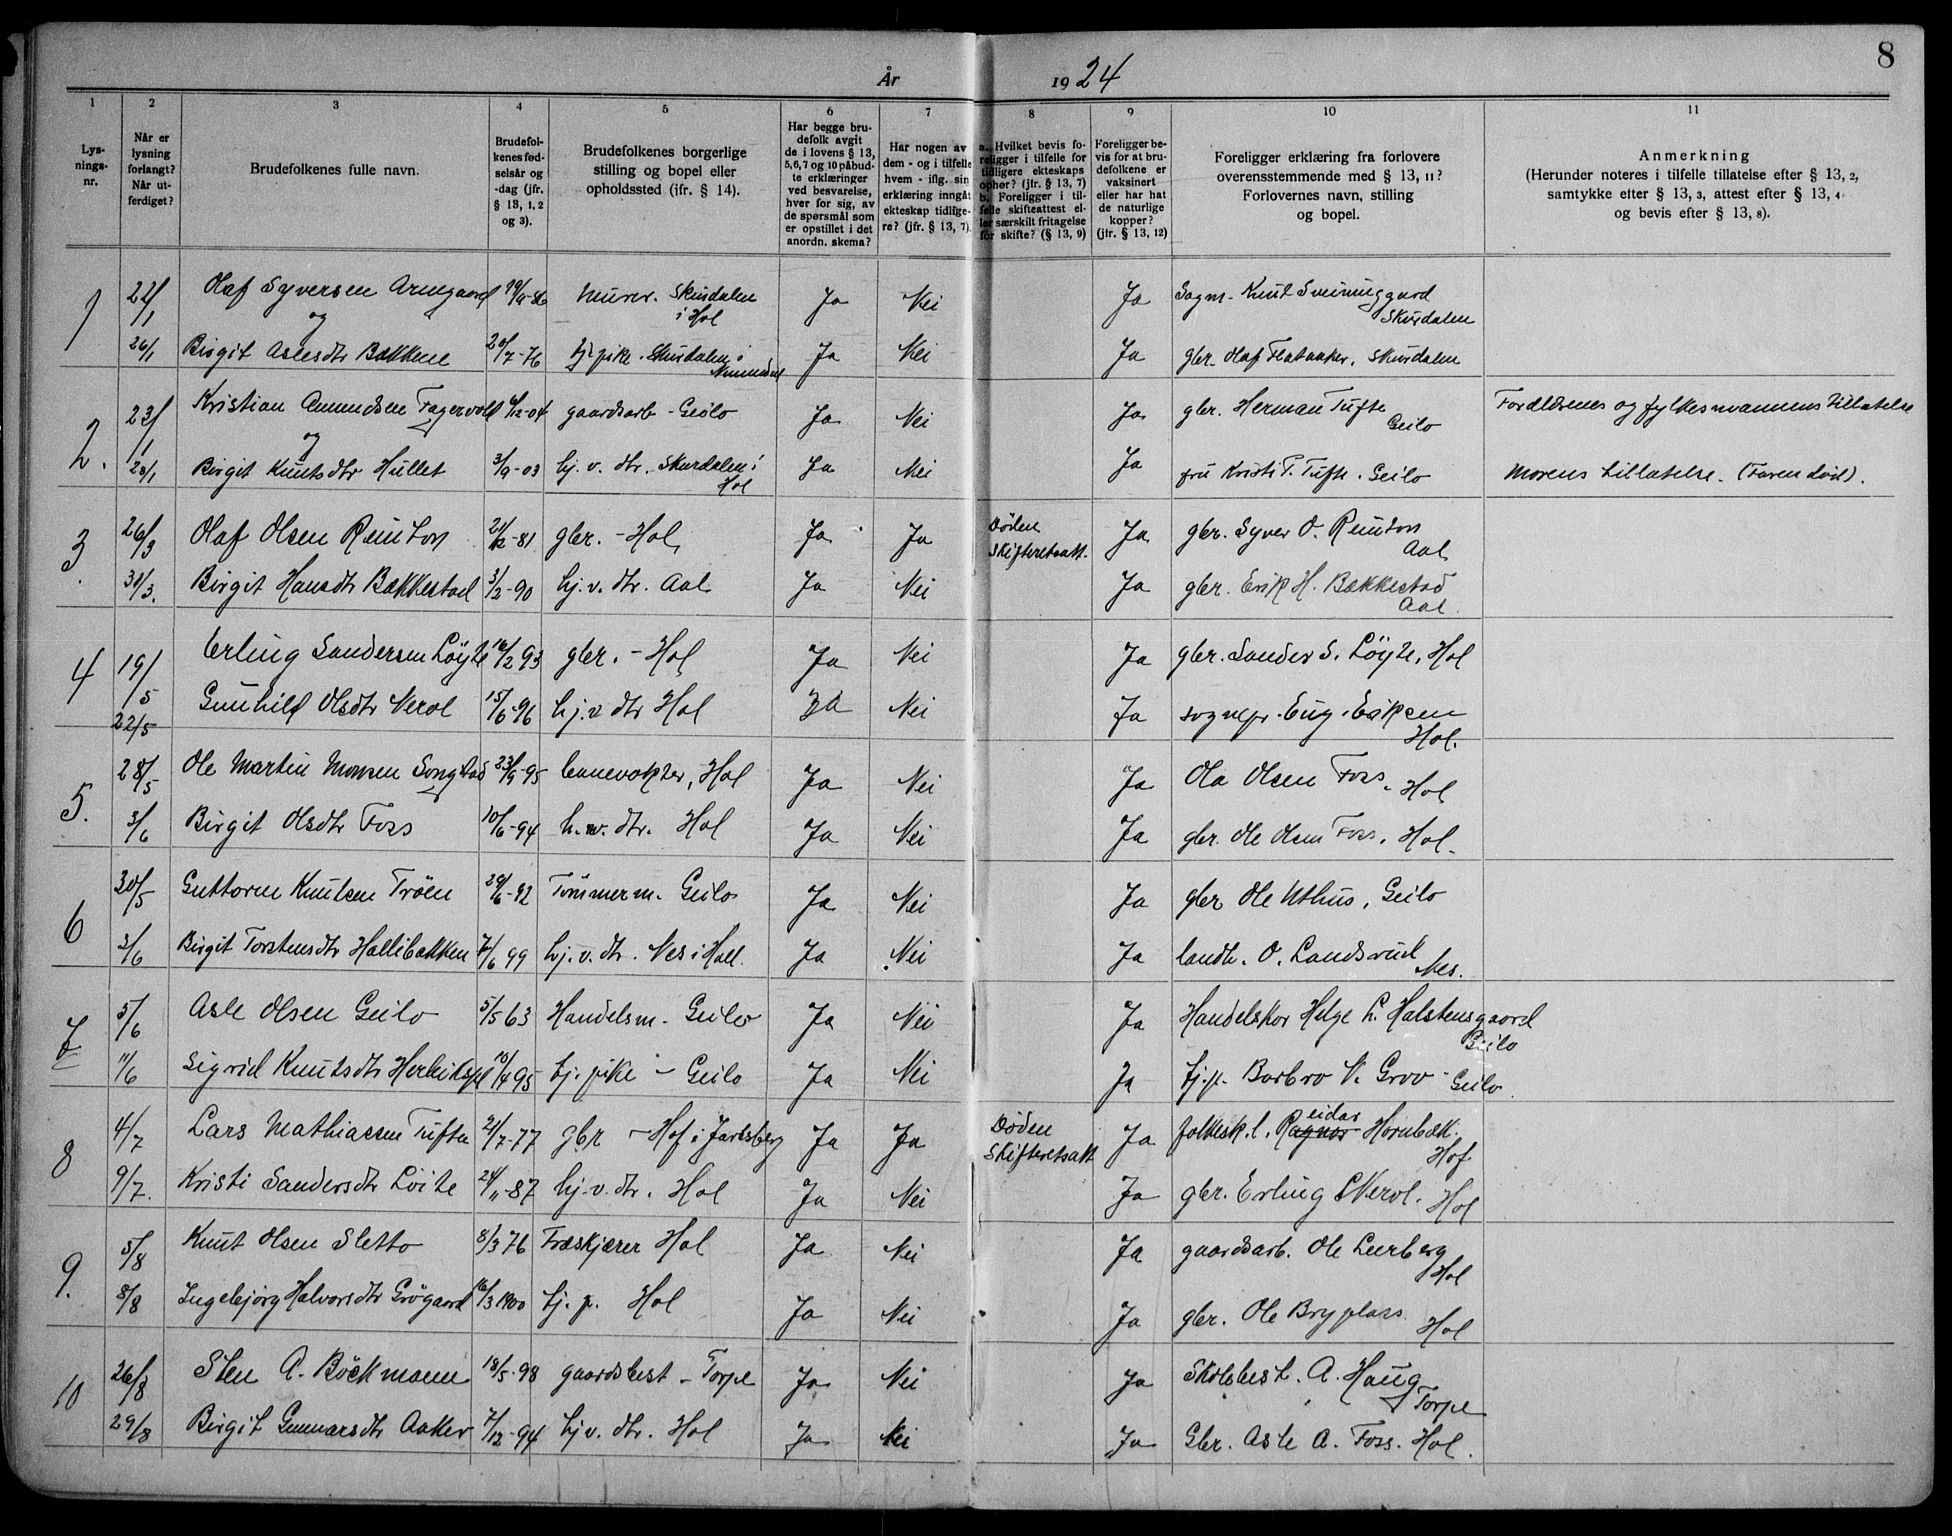 8
År 1924
1 2 3 4 5 6 7 8 9 10 11
Lys-
nings-
nr.
Når er
lysning
forlangt?
Når ut-
ferdiget?
Brudefolkenes fulle navn.
Brudefol-
kenes fød-
selsår og
-dag (jfr.
§ 13, 1, 2
og 3).
Brudefolkenes borgerlige
stilling og bopel eller
opholdssted (ifr. § 14).
Har begge bru-
defolk avgit
de i lovens § 13,
5,6,7 og 10 påbud-
te erklæringer
ved besvarelse,
hver for sig, av
de spørsmål som
er opstillet i det
anordn. skema?
Har nogen av
dem - og i tilfelle
hvem - iflg. sin
erklæring inngåt
ekteskap tidlige-
re? (jfr. § 13, 7).
a. Hvilket bevis fo-
religger i tilfelle for
tidligere ekteskaps
ophør? (jfr. § 13, 7)
b. Foreligger i til-
felle skifteattest el-
ler særskilt fritagelse
for skifte? (§ 13, 9)
Foreligger be-
vis for at bru-
defolkene er
vaksinert
eller har hat
de naturlige
kopper?
(jfr. § 13, 12)
Foreligger erklæring fra forlovere
overensstemmende med § 13, 11?
Forlovernes navn, stilling
og bopel.
Anmerkning
(Herunder noteres i tilfelle tillatelse efter § 13, 2,
samtykke efter § 13, 3, attest efter § 13, 4
og bevis efter § 13, 8).
1 22/1 Olaf Syversen Armgaard 19/9-86 Murer. Skurdalen i Hol Ja Nei Ja Sagm. Knut Sveinunggard Skurdalen
og
26/1 Birgit Aslesdtr Bakkene 20/7-76 tj. pike. Skurdalen i Nummedal Ja Nei Ja gbr. Olaf Flataaker. Skurdalen
2. 23/1 Kristian Amundsen Fagervold /12-04 gaardsarb - Geilo Ja Nei Ja gbr. Herman Tufte Geilo Forældrenes og fylkesmannens tillatelse
og
28/1 Birgit Knutsdtr Hullet 3/9-03 hj. v. dtr. Skurdalen i Hol Ja Nei Ja fru Kristi T. Tufte. Geilo Morens tillatelse. (Faren død).
3. 26/3 Olaf Olsen Reinton 21/12-81 gbr. - Hol Ja Ja Døden Skifteretsatt. Ja gbr. Syver O. Reinton Aal
31/3. Birgit Hansdtr Bækkestad 3/2-90 hj. v. dtr. Aal Ja Nei Ja gbr. Erik H. Bækkestad Aal.
4 19/5 Erling Sandersen Löyte 16/2 93 gbr. - Hol Ja Nei Ja gbr. Sander S. Löyte, Hol
22/5 Gunhild Olsdtr Nerol 15/6-96 hj. v dtr Hol Ja Nei Ja sognepr. Eug. Eriksen Hol.
5. 28/5 Ole Martin Monsen Songstad 23/9-95 banevokter, Hol Ja Nei Ja Ola Olsen Foss. Hol
3/6 Birgit Olsdtr Foss 10/6-94 h. v. dtr. Hol Ja Nei Ja gbr. Ole Olsen Foss. Hol.
6 30/5 Guttorm Knutsen Tröen 29/6-92 Tömmerm. Geilo Ja Nei Ja gbr Ole Uthus, Geilo
3/6 Birgit Torstensdtr Hallibakken 7/6 99 hj. v. dtr. Nes i Hall. Ja Nei Ja landh. O. Landsrud Nes.
7 5/6 Asle Olsen Geilo 5/5 63 Handelsm. Geilo Ja Nei Ja Handelskar Helge L. Halstensgaard Geilo
11/6 Sigrid Knutsdtr 10/4 95 tj. pike - Geilo Ja Nei Ja tj. p. Barbro V. Groo - Geilo
8 4/7 Lars Mathiassen Tufter 21/7-77 gbr - Hof i Jarlsberg Ja Ja Døden Skifteretsatt Ja folkesk. l. Ragnar eidar Hornbæk. Hof.
9/7. Kristi Sandersdtr Löite 24/11-87 hj. v. dtr. Hol Ja Nei Ja gbr. Erling S Nerol. Hol
9. 5/8 Knut Olsen Sletto 8/3 76 Træskjærer Hol Ja Nei Ja gaardsarb. Ole Leerberg Hol
8/8 Ingebjörg Halvorsdtr Grögaard 16/3 1900 tj. p. Hol Ja Nei Ja gbr. Ole Bryplass Hol
10 26/8 Sten A. Böckmann 18/5-98 gaardsbest. - Torpe Ja Nei Ja Skolebest. A. Haug Torpe
29/8 Birgit Gunnarsdtr Aaker 7/12-94 hj v. dtr. Hol Ja Nei Ja Gbr. Asle A. Foss. Hol.